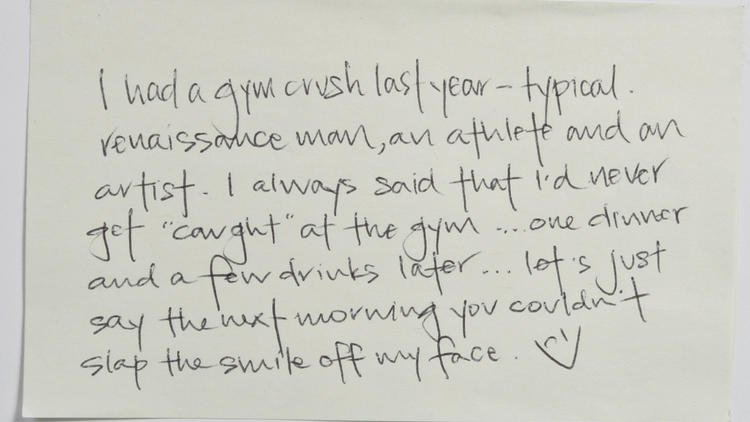 I had a gym crush last year - typical.
renaissance man, an athlete and an
artist. I always said that I'd never
get "caught" at the gym ... one dinner
and a few drinks later... let's just
say the next morning you couldn't
slap the smile off my face.